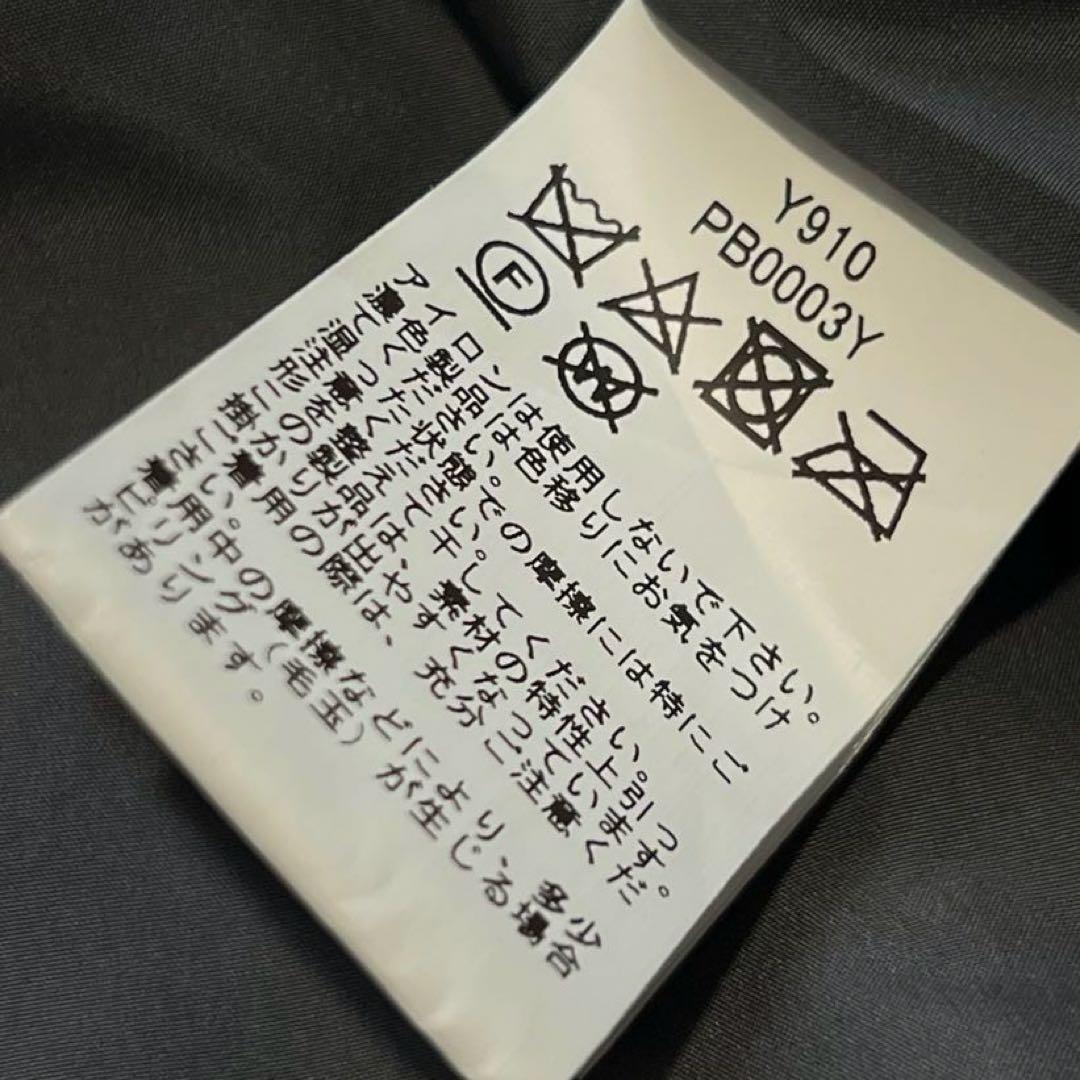 Y910
PB0003Y
F
W
アイロンは使用しないで下さい。
濃色製品は色移りにお気をつけ
てください。
湿った状態での摩擦には特にご
注意ください。
形を整えて干してください。
この製品は、素材の特性上引っ
掛かりが出やすくなっています。
ご着用の際は、充分ご注意くだ
さい。
着用中の摩擦などにより、多少
ピリング(毛玉)が生じる場合
があります。